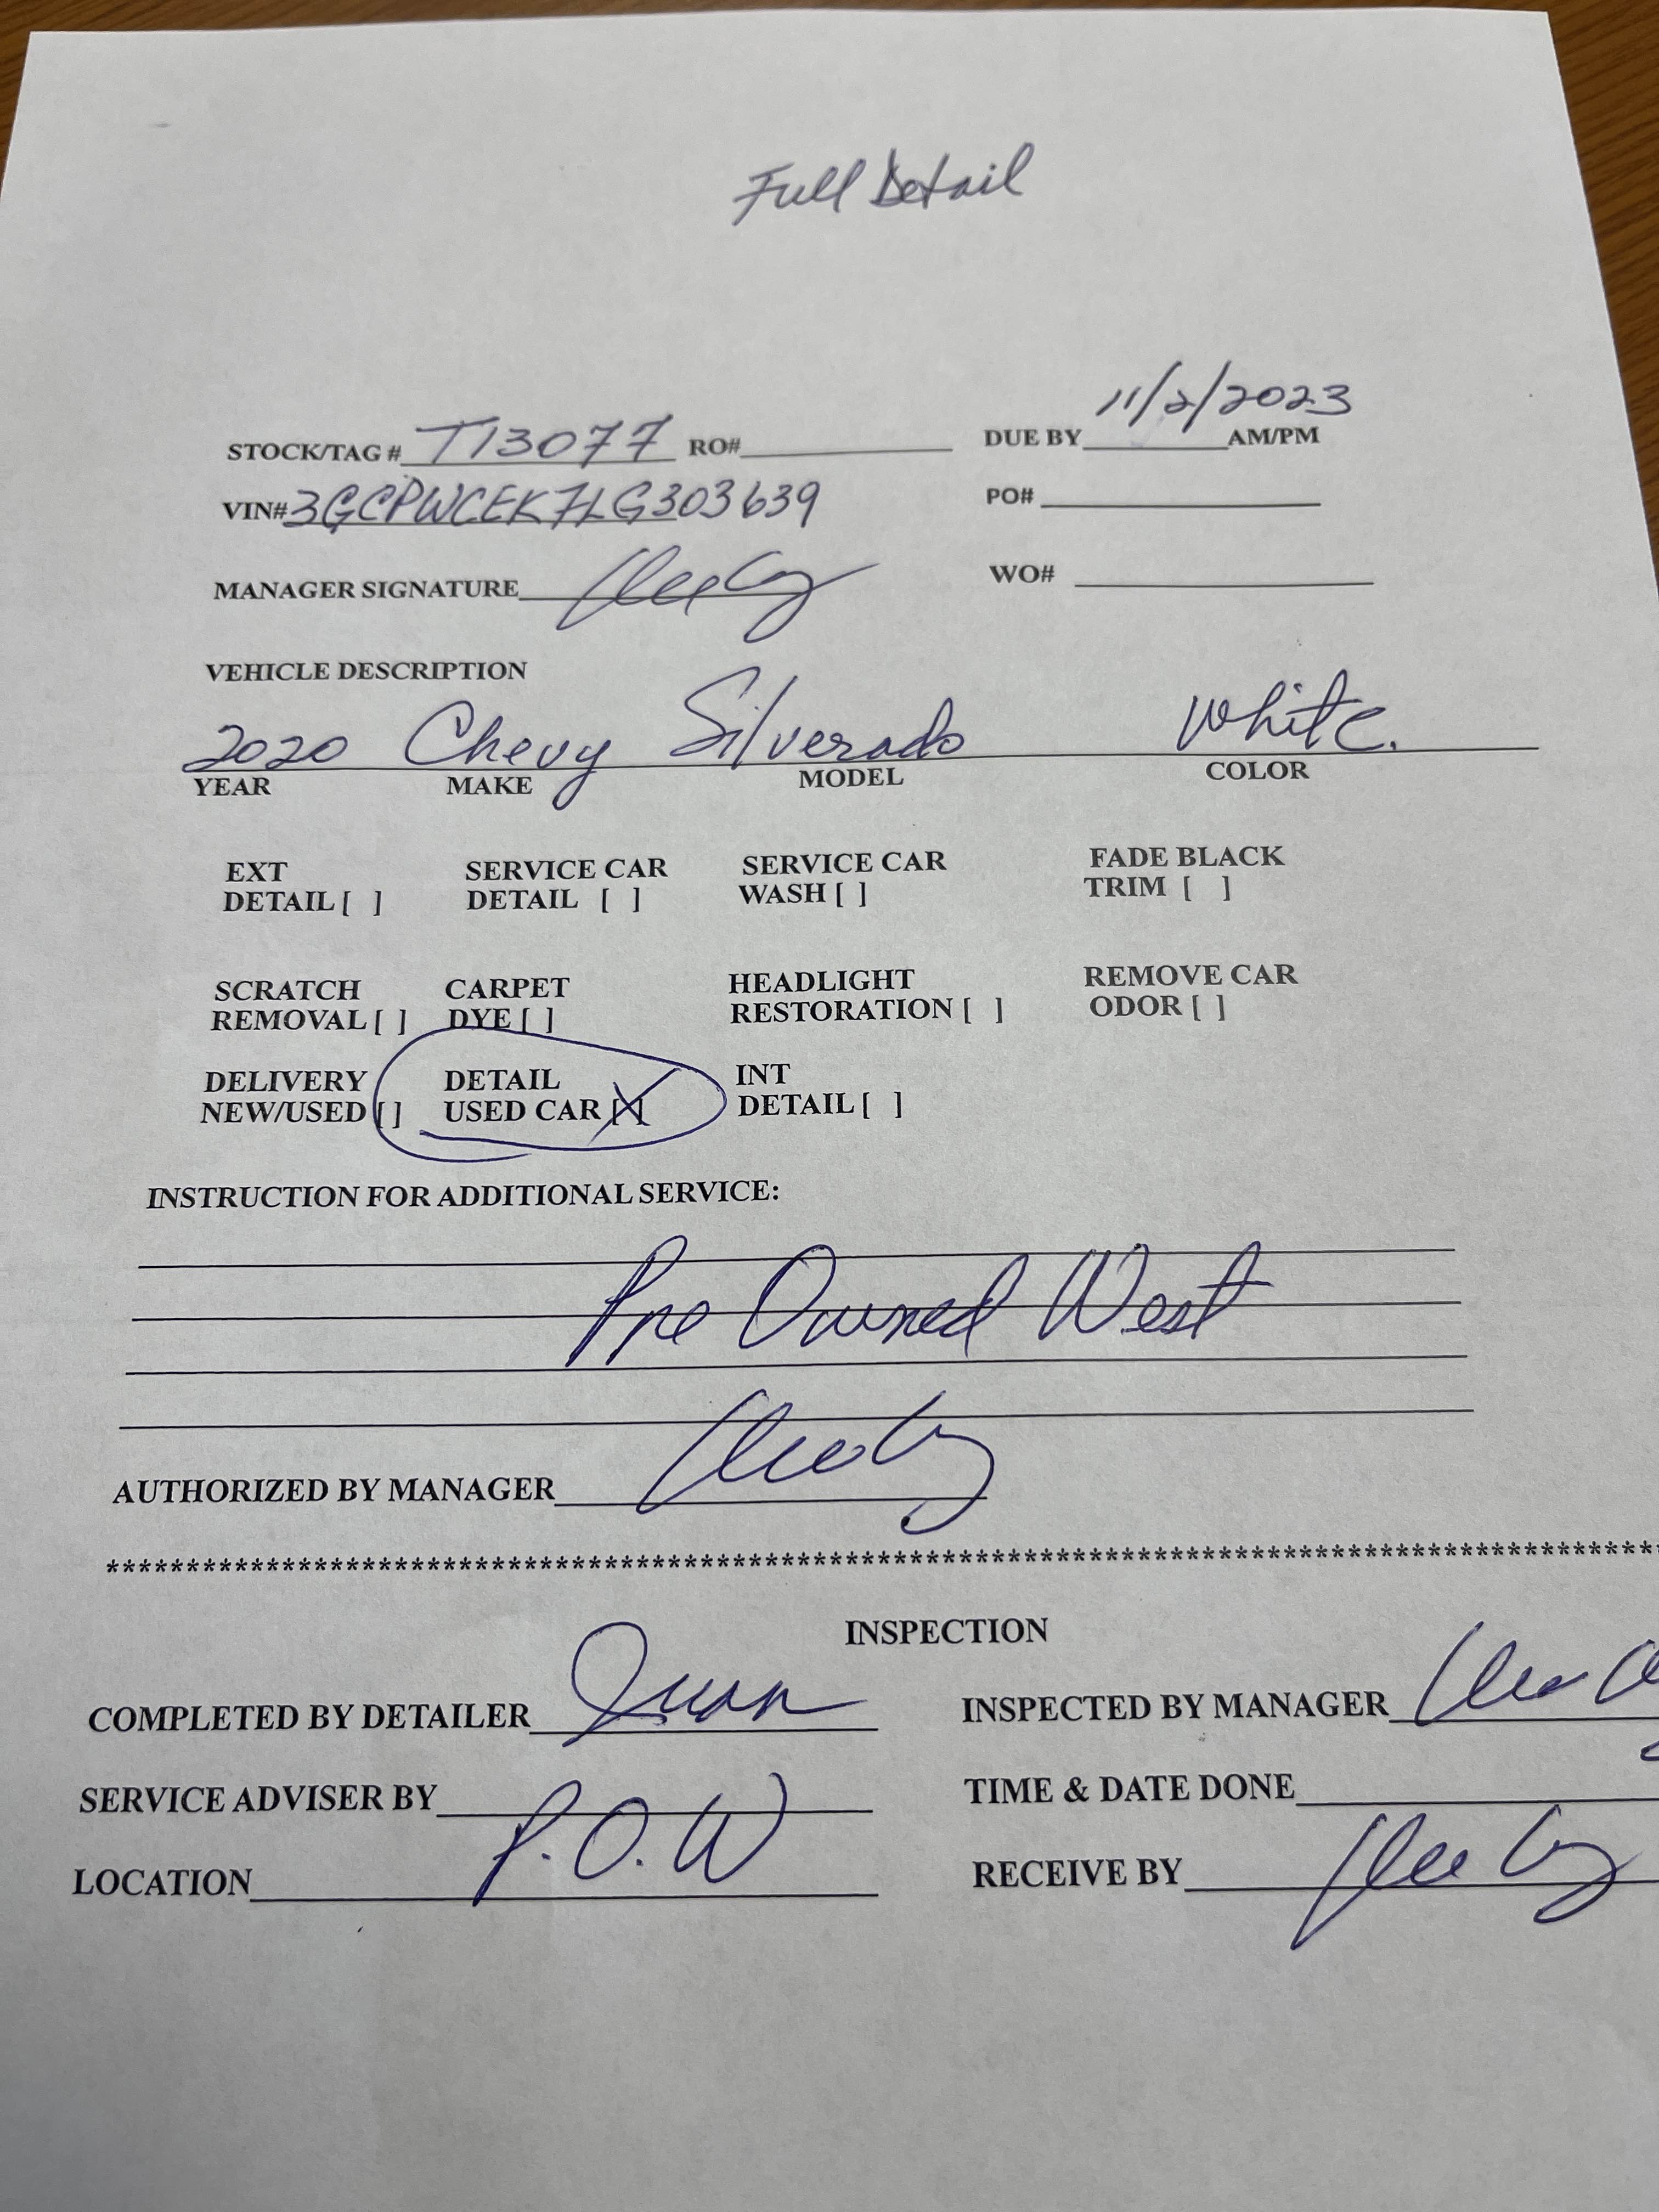 Full Detail
11/2/2023
STOCK/TAG # T13077 RO# DUE BY AM/PM
VIN# 3GCPWCEK7LG303639 PO#
MANAGER SIGNATURE WO#
VEHICLE DESCRIPTION
2020 Chevy Silverado White.
YEAR MAKE MODEL COLOR
EXT SERVICE CAR SERVICE CAR FADE BLACK
DETAIL [ ] DETAIL [ ] WASH [ ] TRIM [ ]
SCRATCH CARPET HEADLIGHT REMOVE CAR
REMOVAL [ ] DYE [ ] RESTORATION [ ] ODOR [ ]
DELIVERY DETAIL INT
NEW/USED [ ] USED CAR [X] DETAIL [ ]
INSTRUCTION FOR ADDITIONAL SERVICE:
Pre Owned West
AUTHORIZED BY MANAGER
*************************************************************************************************
INSPECTION
COMPLETED BY DETAILER Juan INSPECTED BY MANAGER
SERVICE ADVISER BY TIME & DATE DONE
LOCATION P.O.W RECEIVE BY